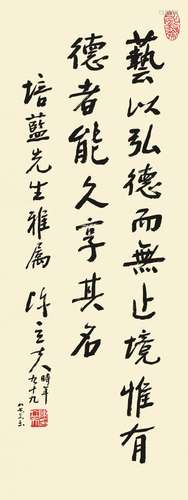 藝以弘德而無止境惟有
德者能久享其名
培藍先生雅属 陳立夫 時年九十九